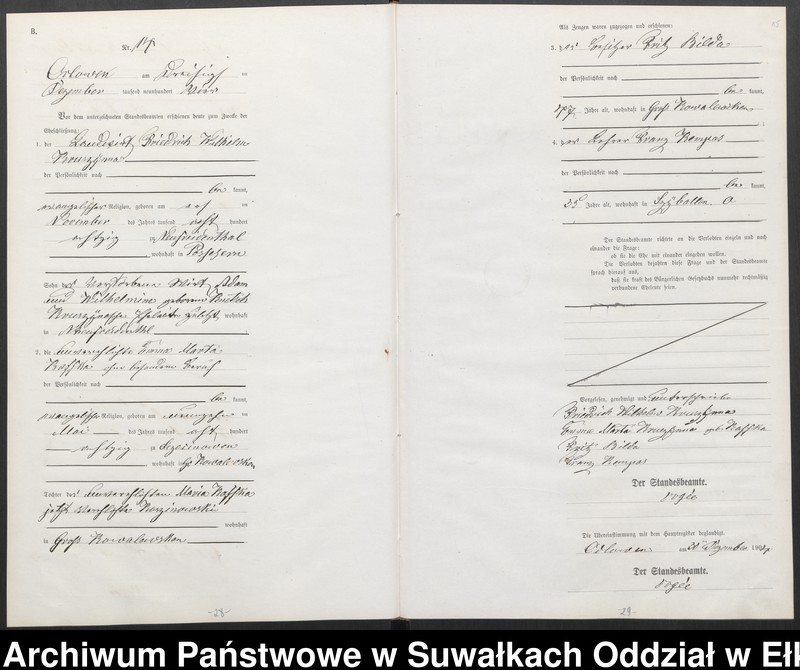 B.
Nr. 14
Orlowen am dreißigsten
Dezember tausend neunhundert vier
Vor dem unterzeichneten Standesbeamten erschienen heute zum Zwecke der
Eheschließung:
1. der Landwirt Friedrich Wilhelm
der Persönlichkeit nach
be kannt,
evangelischer Religion, geboren am
November des Jahres tausend acht hundert
achtzig zu Neufreudenthal
wohnhaft in
Sohn des verstorbenen Wirt Adam
und Wilhelmine geborene
Eheleute wohnhaft
in
2. die unverehelichte Emma Marta
Kaffka ohne besonderen Beruf
der Persönlichkeit nach
be kannt,
evangelischer Religion, geboren am neunzehn
Mai des Jahres tausend acht hundert
achtzig zu
wohnhaft in Gr. Kowalewsken
Tochter der unverehelichten Maria Kaffka
jetzt verehelichte
wohnhaft
in Groß Kowalewsken
-28-
Als Zeugen waren zugezogen und erschienen:
3. der Besitzer Fritz Bilda
der Persönlichkeit nach
be kannt,
Jahre alt, wohnhaft in Groß Kowalewsken
4. der Lehrer Franz Kompas
der Persönlichkeit nach
be kannt,
25 Jahre alt, wohnhaft in Szyballen.
Der Standesbeamte richtete an die Verlobten einzeln und nach
einander die Frage:
ob sie die Ehe mit einander eingehen wollen.
Die Verlobten bejahten diese Frage und der Standesbeamte
sprach hierauf aus,
daß sie kraft des Bürgerlichen Gesetzbuchs nunmehr rechtmäßig
verbundene Eheleute seien.
Vorgelesen, genehmigt und unterschrieben
Friedrich Wilhelm
Emma Marta geb. Kaffka
Fritz Bilda
Franz Kompas
Der Standesbeamte.
Die Übereinstimmung mit dem Hauptregister beglaubigt.
Orlowen am 30. Dezember 1904
Der Standesbeamte.
-29-
Archiwum Państwowe w Suwałkach Oddział w Eł